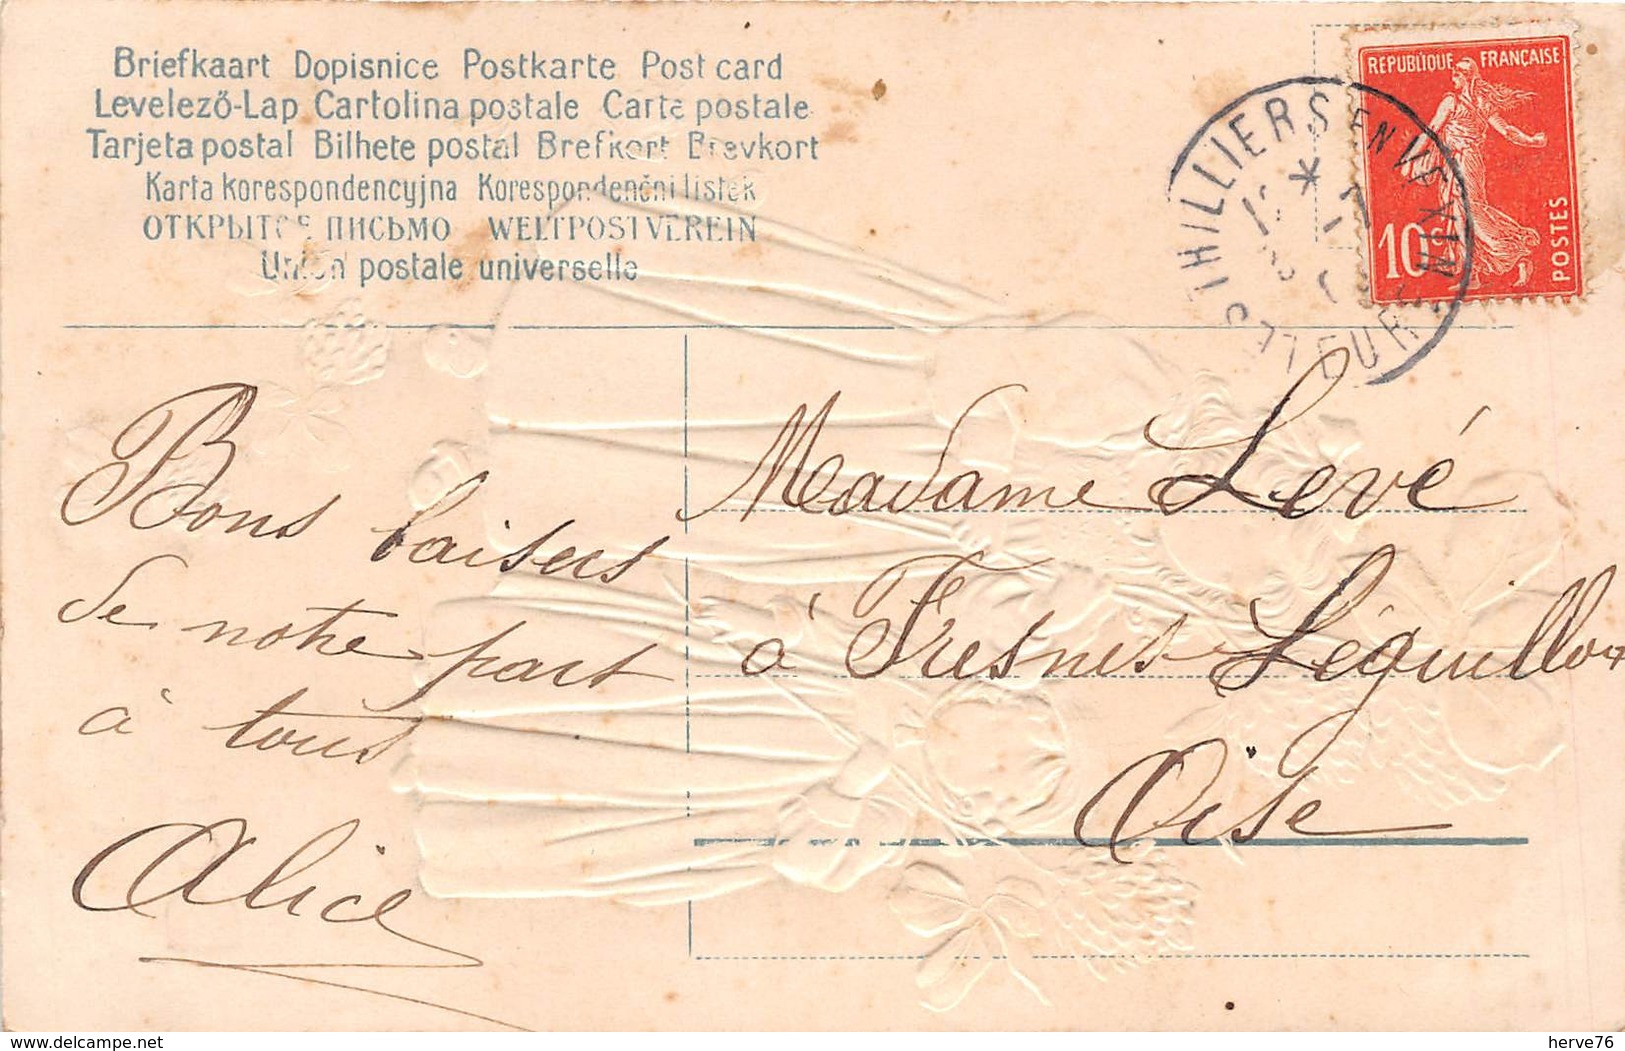 Briefkaart Dopisnice Postkarte Post card
Levelező-Lap Cartolina postale Carte postale
Tarjeta postal Bilhete postal Brefkort Brevkort
Karta korespondencyjna Korespondenční listek
ОТКРЫТОЕ ПИСЬМО WELTPOSTVEREIN
Union postale universelle
REPUBLIQUE FRANÇAISE
10c
POSTES
THILLIERS EN VEXIN
Bons baisers
de notre part
à tous
Alice
Madame Levé
à Fresnes Léguillon
Oise
delcampe.net
herve76